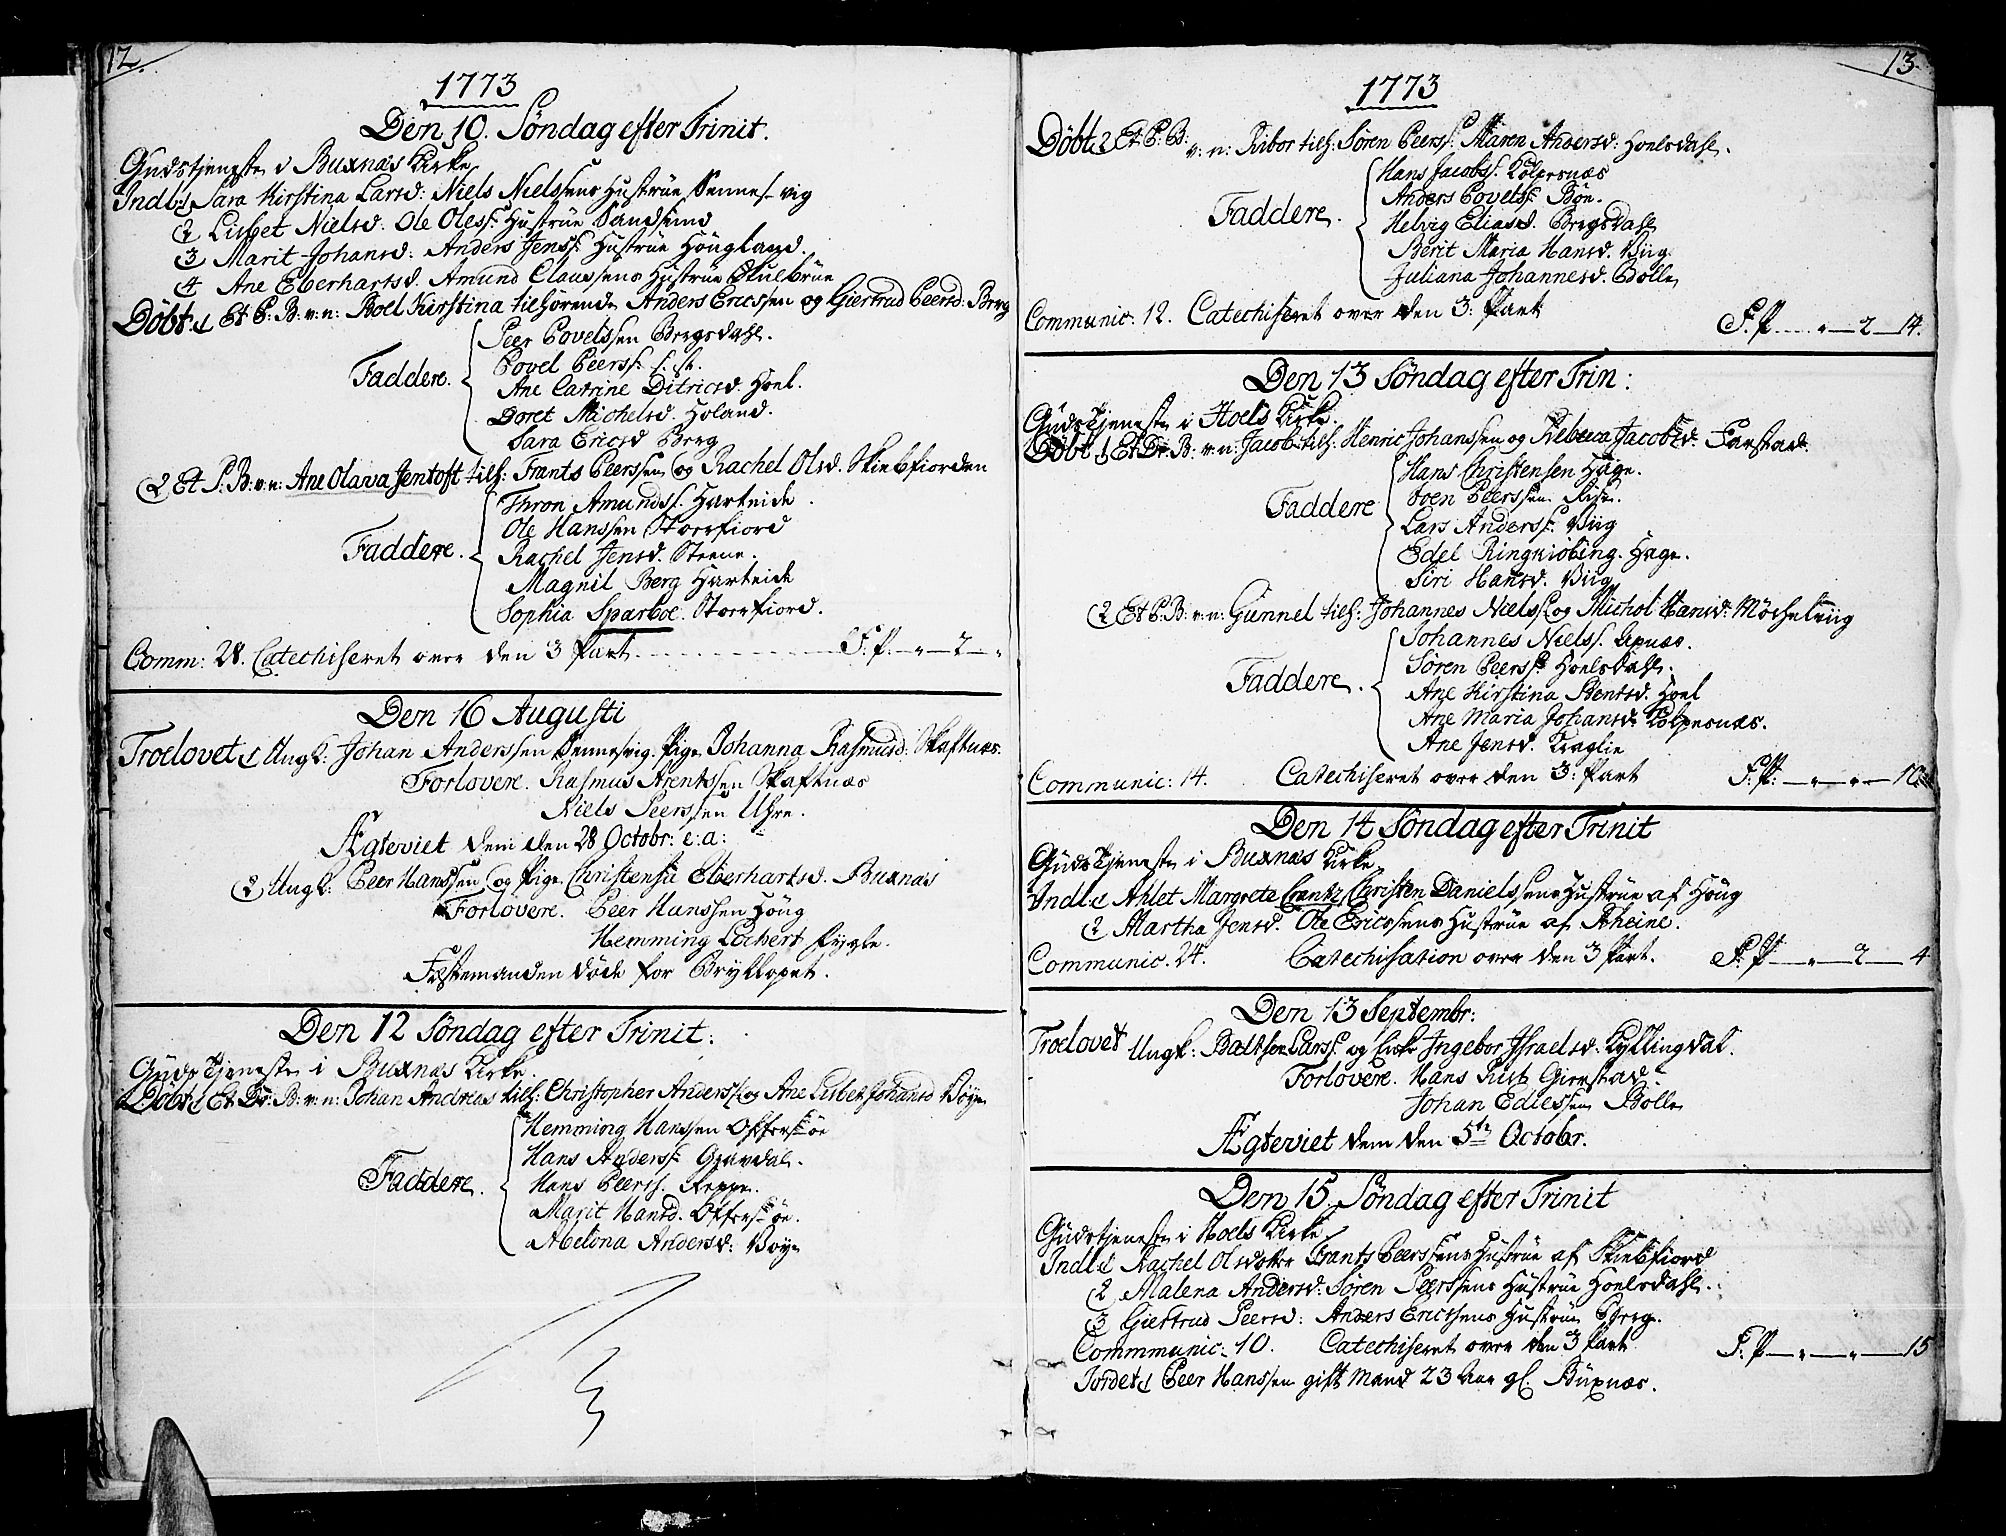 12.
1773
Den 10. Søndag efter Trinit.
Gudstjeneste i Buxnæs Kirke
Indl: 1 Sara Kirstina Larsd: Niels Nielssens Hustrue Sennesvig
2 Lisbet Nielsd. Ole Oless: Hustrue Sandsund
3 Marit Johansd: Anders Jenss: Hustrue Hougland
4 Ane Eberhartsd. Amund Claussens Hustrue Skulbrue
Døbt. 1 Et P: B: v: n: Boel Kirstina tilhørende Anders Ericssen og Giertrud Peersd: Berg
Peer Povelssen Bergsdahl.
Povel Peerss: s. st.
Faddere. Ane Catrine Ditricsd. Hoel.
Doret Michelsd. Holand.
Sara Ericsd Berg
2 Et P: B: v: n: Ane Olava Jentoft tilh: Frants Peerssen og Rachel Olsd. Skiebfiorden
Thron Amundss: Harteide.
Ole Hanssen Storfiord
Faddere. Rachel Jensd. Steene.
Magnil Berg Harteide
Sophia Sparboe. Storfiord.
Comm: 28. Catechiseret over den 3 Part. F: P. „ 2 „
Den 16 Augusti
Troelovet 1 Ungk: Johan Anderssen Sennesvig. Pige Johanna Rasmusd: Skaftnæs.
Forlovere. Rasmus Arentssen Skaftnæs
Niels Peerssen Uhre.
Ægteviet dem den 28 Octobr: e: a:
2 Ungk: Peer Hanssen og Pige Christense Eberhartsd. Buxnæs
Forlovere. Peer Hanssen Houg
Hemming Lochert Fygle.
Festemanden døde for Brylluppet.
Den 12 Søndag efter Trinit:
Gudstjeneste i Buxnæs Kirke.
Døbt 1 Et Dr: B: v: n: Johan Andreas tilh: Christopher Anderss: og Ane Lisbet Johansd Bøye
Hemming Hanssen Offersøe
Hans Anderss: Gravdal.
Faddere. Hans Peerss. Reppe.
Marit Hansd. Offersøe.
Abelona Andersd: Bøye
13.
1773
Døbt 2 Et P: B: v: n: Ribor tilh: Søren Peerss: Maren Andersd: Hoelsdahl.
Hans Jacobss: Kolpesnæs
Anders Povelss: Bøe.
Faddere. Helvig Eliasd. Bergsdahl
Berit Maria Hansd. Viig
Juliana Johannesd. Bolle
Communic: 12. Catechiseret over den 3: Part F: P. „ 2 14.
Den 13 Søndag efter Trin:
Gudstjeneste i Hoels Kirke
Døbt 1 Et Dr: B: v: n: Jacob tilh: Henric Johanssen og Rebecca Jacobsd. Farstad.
Hans Christensen Hage.
Joen Peerssen Rise.
Faddere Lars Anderss: Viig
Edel Ringkiøbing. Hage.
Siri Hansd. Viig
2 Et P: B: v: n: Gunnel tilh: Johannes Nielss: og Michol Hansd: Mochelviig
Johannes Nielss. Apnæs.
Søren Peerss: Hoelsdahl.
Faddere. Ane Kirstina Bentsd. Hoel
Ane Maria Johansd: Kolpesnæs.
Ane Jensd. Kraglie
Communic: 14. Catechiseret over den 3: Part F: P: „ „ 10
Den 14 Søndag efter Trinit
Gudstjeneste i Buxnæs Kirke
Indl: 1 Ahlet Margrete Crantz Christen Danielssens Hustrue af Houg
2 Martha Jensd. Ole Ericssens Hustrue af Rheine.
Communic. 24. Catechisation over den 3 Part. F: P „ 2 4
Den 13 Septembr:
Troelovet Ungk: Baltser Larss: og Enke Ingebor Israelsd. Kyllingdal.
Forlovere. Hans Rist Gierstad.
Johan Ediessen Bolle
Ægteviet dem den 5te Octobr.
Den 15. Søndag efter Trinit
Gudstjeneste i Hoels Kirke
Indl: 1 Rachel Olsdatter Frants Peerssens Hustrue af Skiebfiord
2 Malena Andersd: Søren Peerssens Hustrue Hoelsdahl.
3 Giertrud Peersd: Anders Ericsens Hustrue Berg.
Commmunic: 10. Catechiseret over den 3 Part F: P „ „ 15
Jordet 1 Peer Hanssen gift Mand 23 Aar gl. Buxnæs.